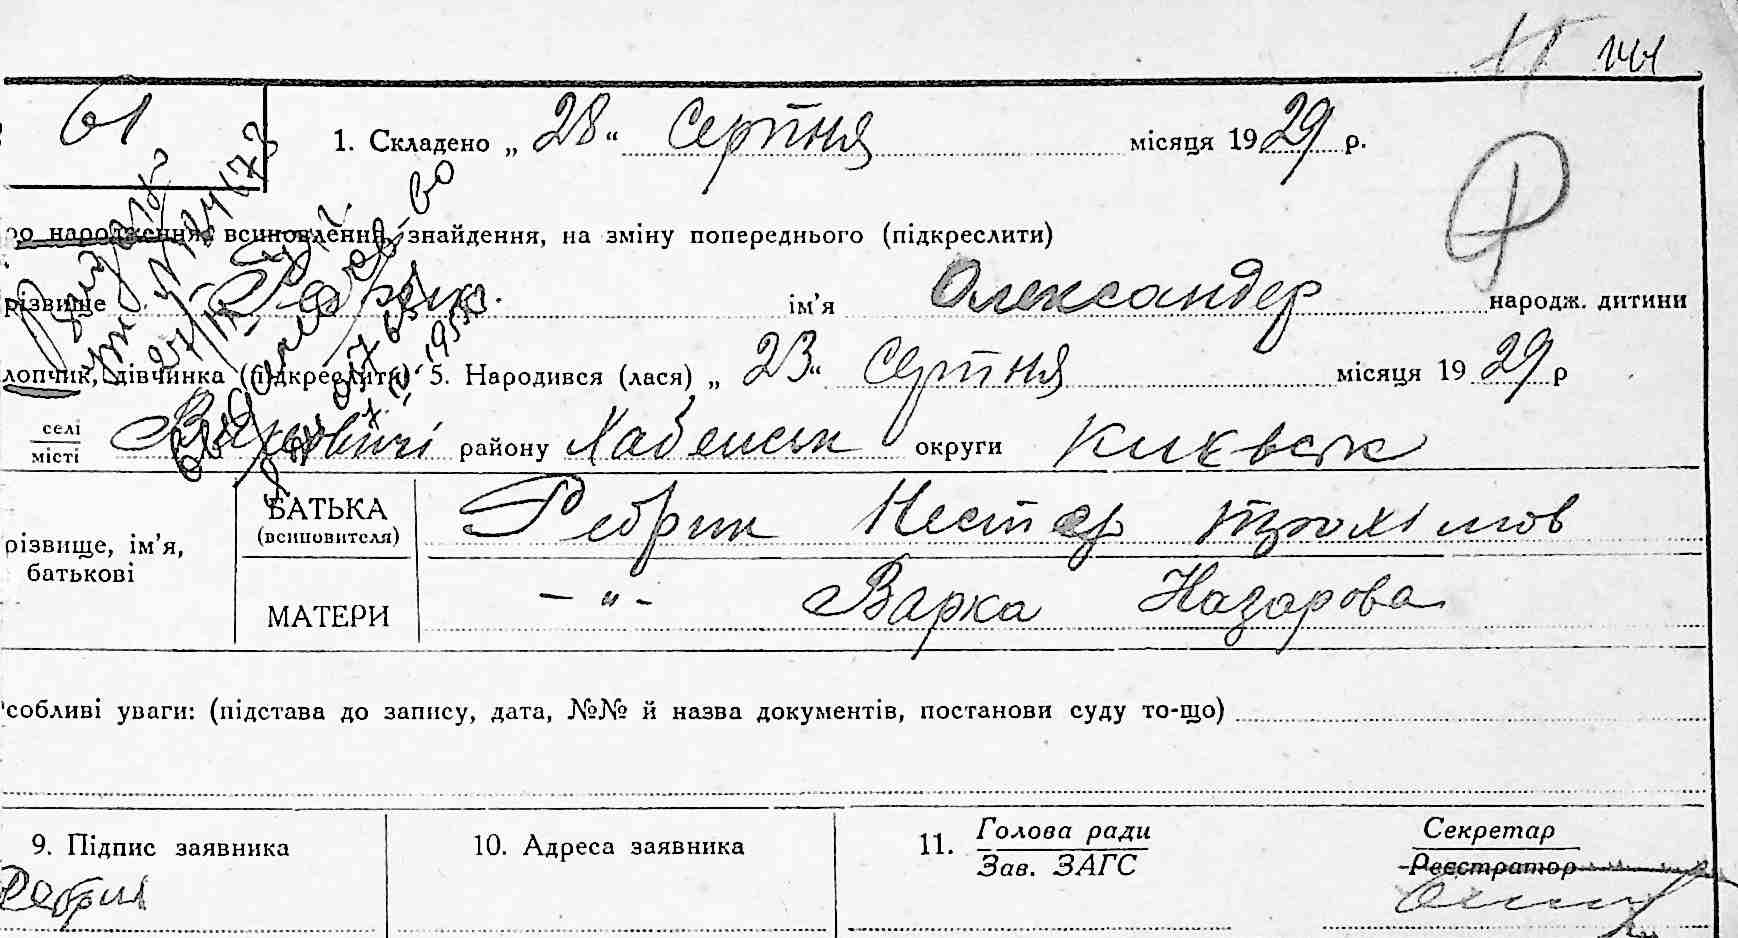 144
61
1. Складено „ 28 “ Серпня місяця 1929 р.
ро народження, всиновлення, знайдення, на зміну попереднього (підкреслити)
різвище Ребрик ім’я Олександер народж. дитини
лопчик, дівчинка (підкреслити) 5. Народився (лася) „ 23 “ Серпня місяця 1929 р
селі
місті
району Хабенськ округи Києвськ
різвище, ім’я, батькові
БАТЬКА (всиновителя) Ребрик Нестер Трохімов
МАТЕРИ – „ – Варка Назарова
собливі уваги: (підстава до запису, дата, №№ й назва документів, постанови суду то-що)
9. Підпис заявника
10. Адреса заявника
11. Голова ради
Зав. ЗАГС
Секретар
Реєстратор
Ребрик